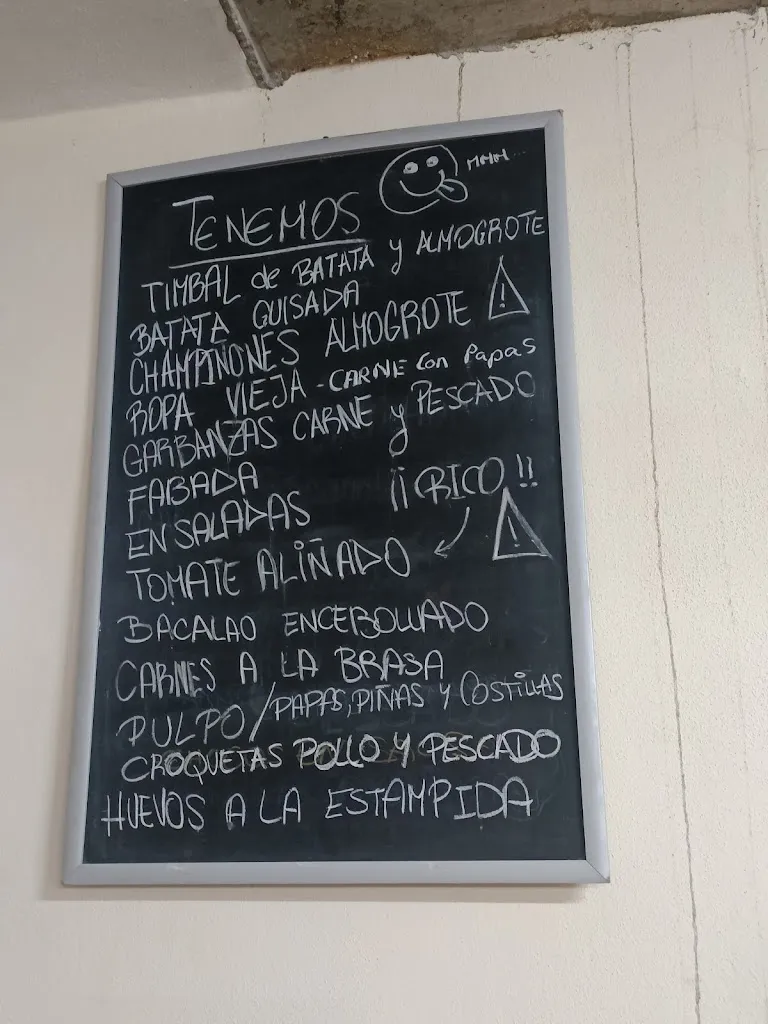 MMM...
TENEMOS
TIMBAL de BATATA y ALMOGROTE
BATATA GUISADA
CHAMPIÑONES ALMOGROTE !
ROPA VIEJA - CARNE con Papas
GARBANZAS CARNE y PESCADO
FABADA
¡¡RICO!!
ENSALADAS
!
TOMATE ALIÑADO
BACALAO ENCEBOLLADO
CARNES A LA BRASA
PULPO / PAPAS, PIÑAS Y COSTILLAS
CROQUETAS POLLO Y PESCADO
HUEVOS A LA ESTAMPIDA